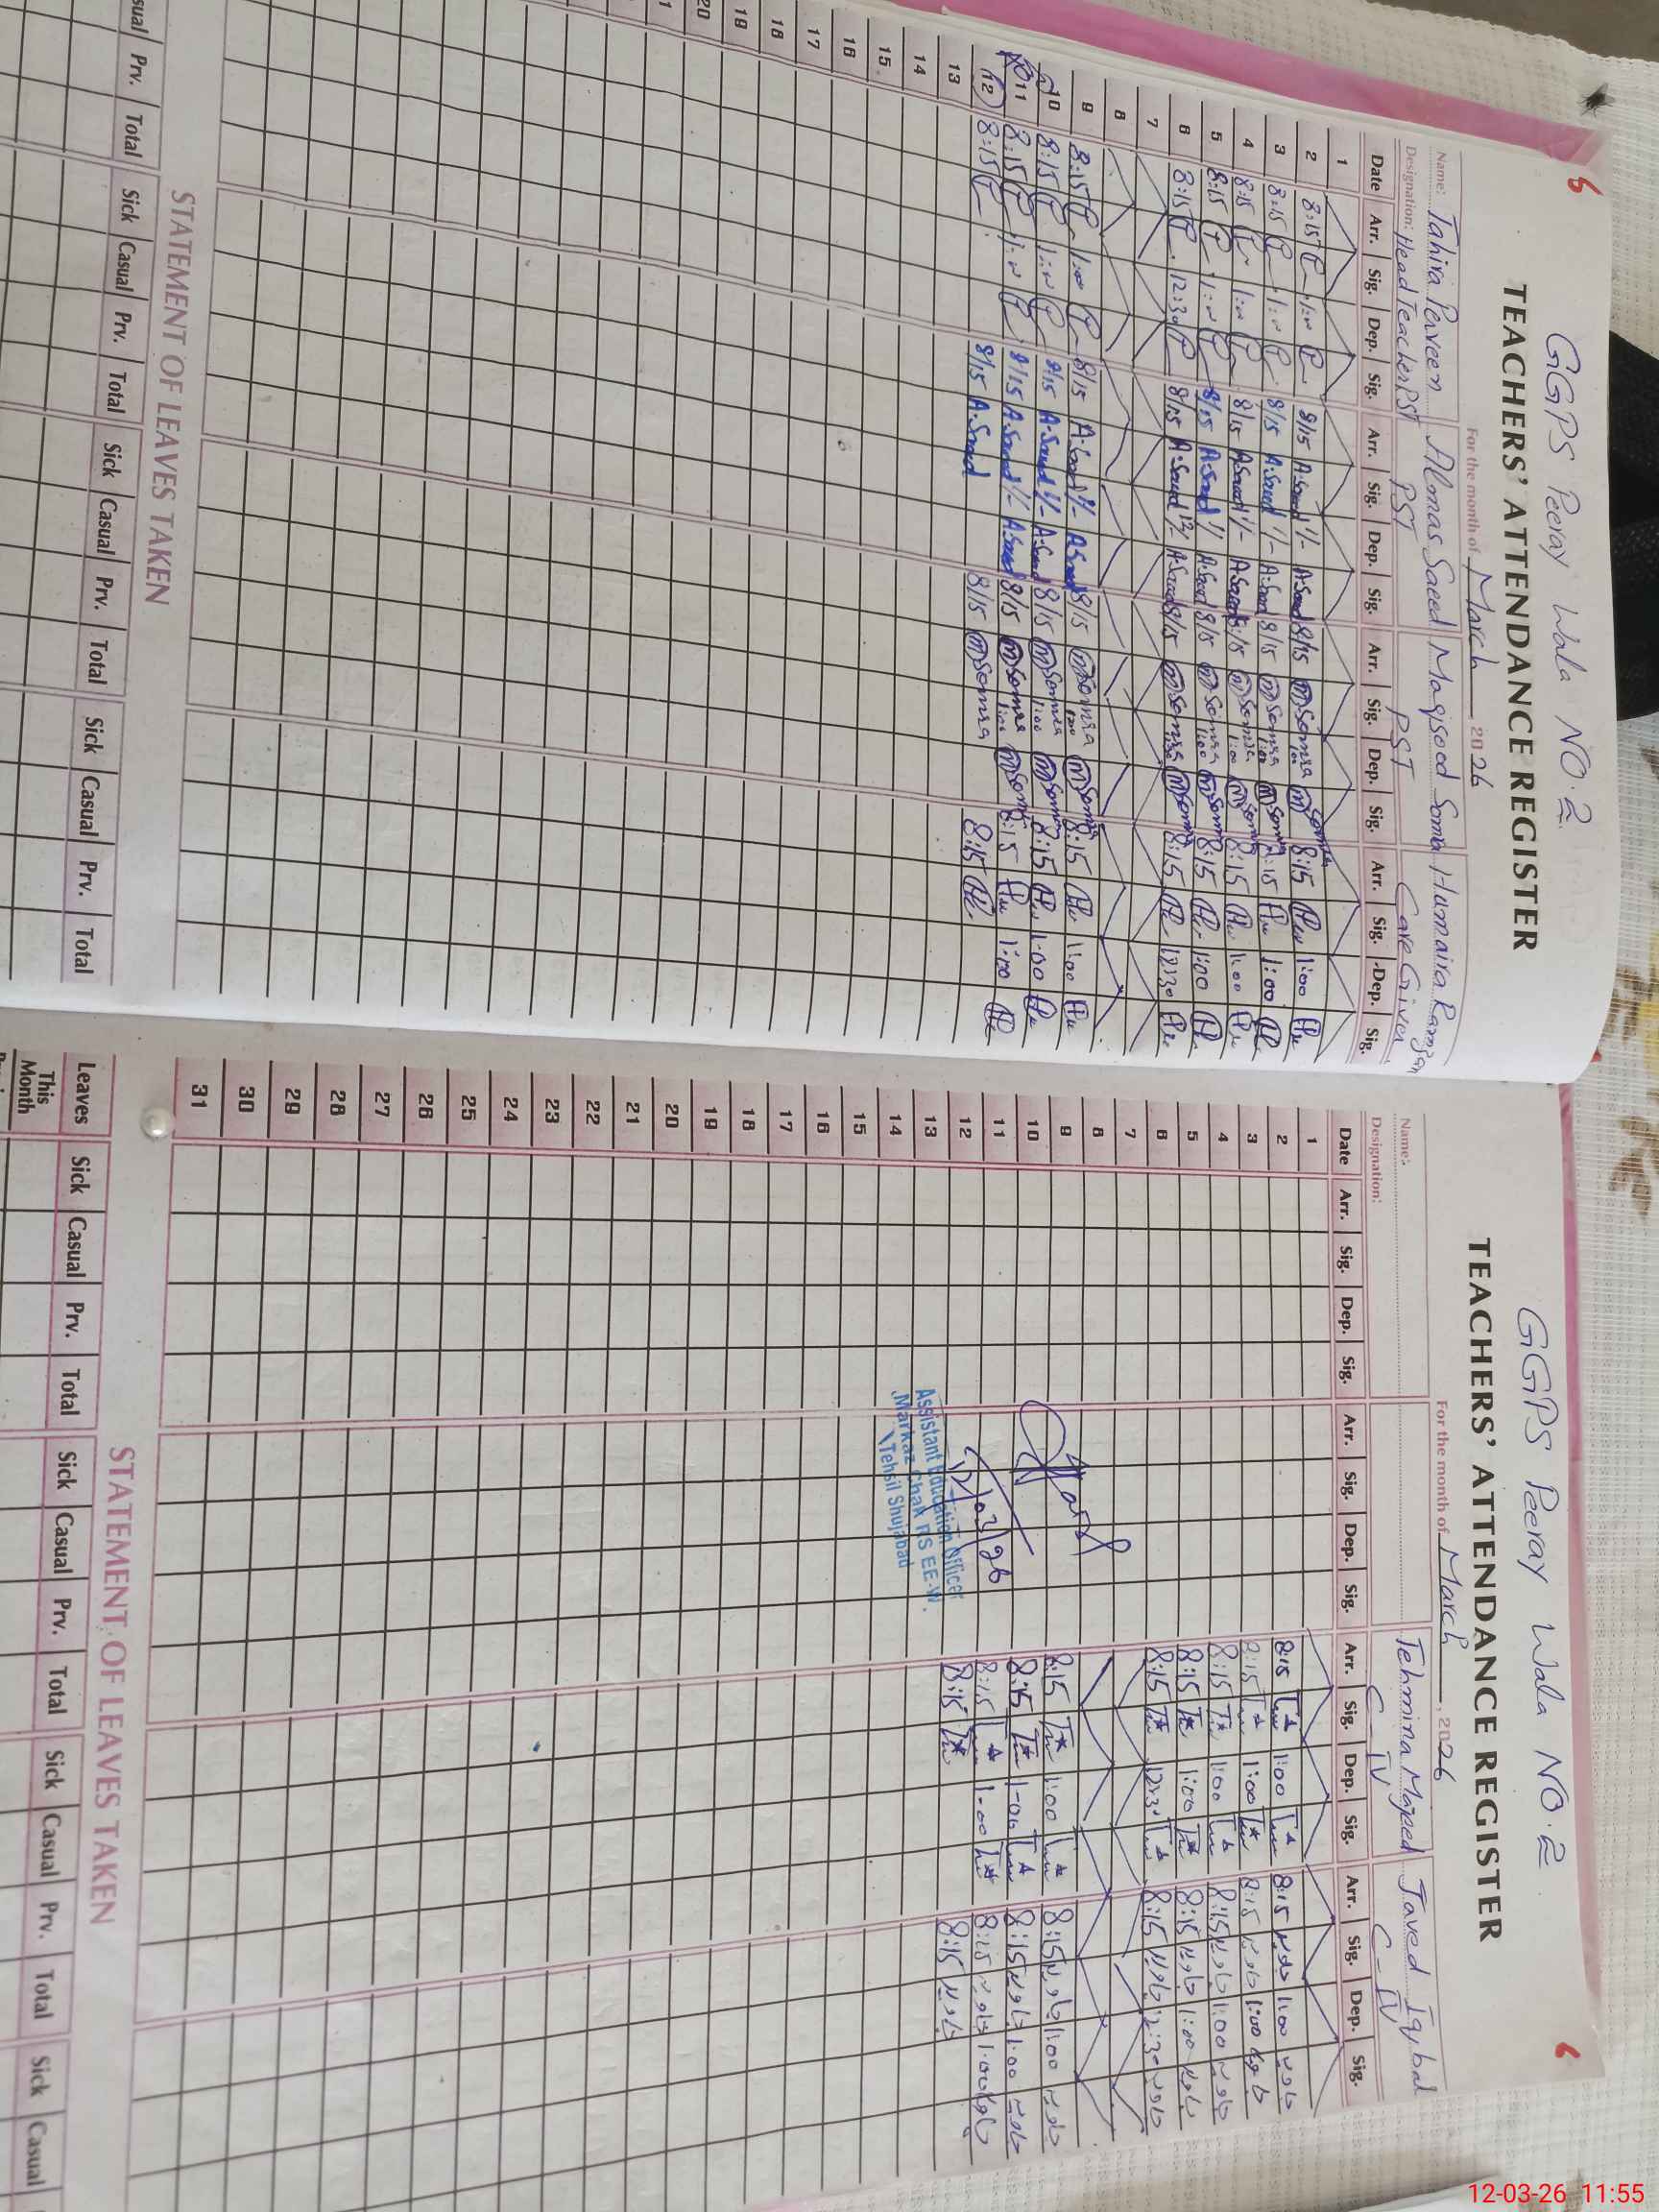 5
GGPS Peeray Wala NO.2
TEACHERS' ATTENDANCE REGISTER
For the month of March, 2026
Name: Tahira Parveen Almas Saeed Maqsood Somra Humaira Ramzan
Designation: Head Teacher PST PST PST Care Giver
Date Arr. Sig. Dep. Sig. Arr. Sig. Dep. Sig. Arr. Sig. Dep. Sig. Arr. Sig. Dep. Sig.
1
2 8:15 1:00 8/15 A.Saeed 1/- A.Saeed 8/15 Somra 1:00 Somra 8:15 1:00
3 8:15 1:00 8/15 A.Saeed 1/- A.Saeed 8/15 Somra 1:00 Somra 8:15 1:00
4 8:15 1:00 8/15 A.Saeed 1/- A.Saeed 8/15 Somra 1:00 Somra 8:15 1:00
5 8:15 1:00 8/15 A.Saeed 1/- A.Saeed 8/15 Somra 1:00 Somra 8:15 1:00
6 8:15 12:30 8/15 A.Saeed A.Saeed 8/15 Somra Somra 8:15 12:30
7
8
9 8:15 1:00 8/15 A.Saeed 1/- A.Saeed 8/15 Somra 1:00 Somra 8:15 1:00
10 8:15 1:00 8/15 A.Saeed 1/- A.Saeed 8/15 Somra 1:00 Somra 8:15 1:00
11 8:15 1:00 8/15 A.Saeed 1/- A.Saeed 8/15 Somra 1:00 Somra 8:15 1:00
12 8:15 8/15 A.Saeed 8/15 Somra 8:15
13
14
15
16
17
18
19
20
STATEMENT OF LEAVES TAKEN
Prv. Total Sick Casual Prv. Total Sick Casual Prv. Total Sick Casual Prv. Total
6
GGPS Peeray Wala NO.2
TEACHERS' ATTENDANCE REGISTER
For the month of March, 2026
Name: Tehmina Majeed Javed Iqbal
Designation: C-IV C-IV
Date Arr. Sig. Dep. Sig. Arr. Sig. Dep. Sig. Arr. Sig. Dep. Sig. Arr. Sig. Dep. Sig.
1
2 8:15 1:00 8:15 1:00
3 8:15 1:00 8:15 1:00
4 8:15 1:00 8:15 1:00
5 8:15 1:00 8:15 1:00
6 8:15 12:3 8:15 12:30
7
8
9 8:15 1:00 8:15 1:00
10 8:15 1:00 8:15 1:00
11 8:15 1:00 8:15 1:00
12 8:15 8:15
13
14
15
16
17
18
19
20
21
22
23
24
25
26
27
28
29
30
31
12/03/26
Assistant Education Officer
Markaz Chak RS EE.W.
Tehsil Shujabad
STATEMENT OF LEAVES TAKEN
Leaves Sick Casual Prv. Total Sick Casual Prv. Total Sick Casual Prv. Total Sick Casual
This Month
12-03-26 11:55